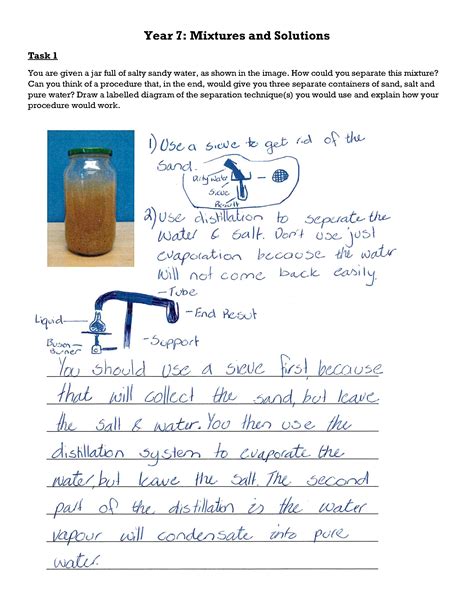 Year 7: Mixtures and Solutions
Task 1
You are given a jar full of salty sandy water, as shown in the image. How could you separate this mixture?
Can you think of a procedure that, in the end, would give you three separate containers of sand, salt and
pure water? Draw a labelled diagram of the separation technique(s) you would use and explain how your
procedure would work.
1) Use a sieve to get rid of the
Sand.
Dirty water
Sieve
Result
2) Use distillation to seperate the
water & salt. Don't use just
evaporation because the water
will not come back easily.
-Tube
Liquid
-End Result
Bunsen
Burner
-Support
You should use a sieve first, because
that will collect the sand, but leave
the salt & water. You then use the
distillation system to evaporate the
water, but leave the salt. The second
part of the distillation is the water
vapour will condensate into pure
water.